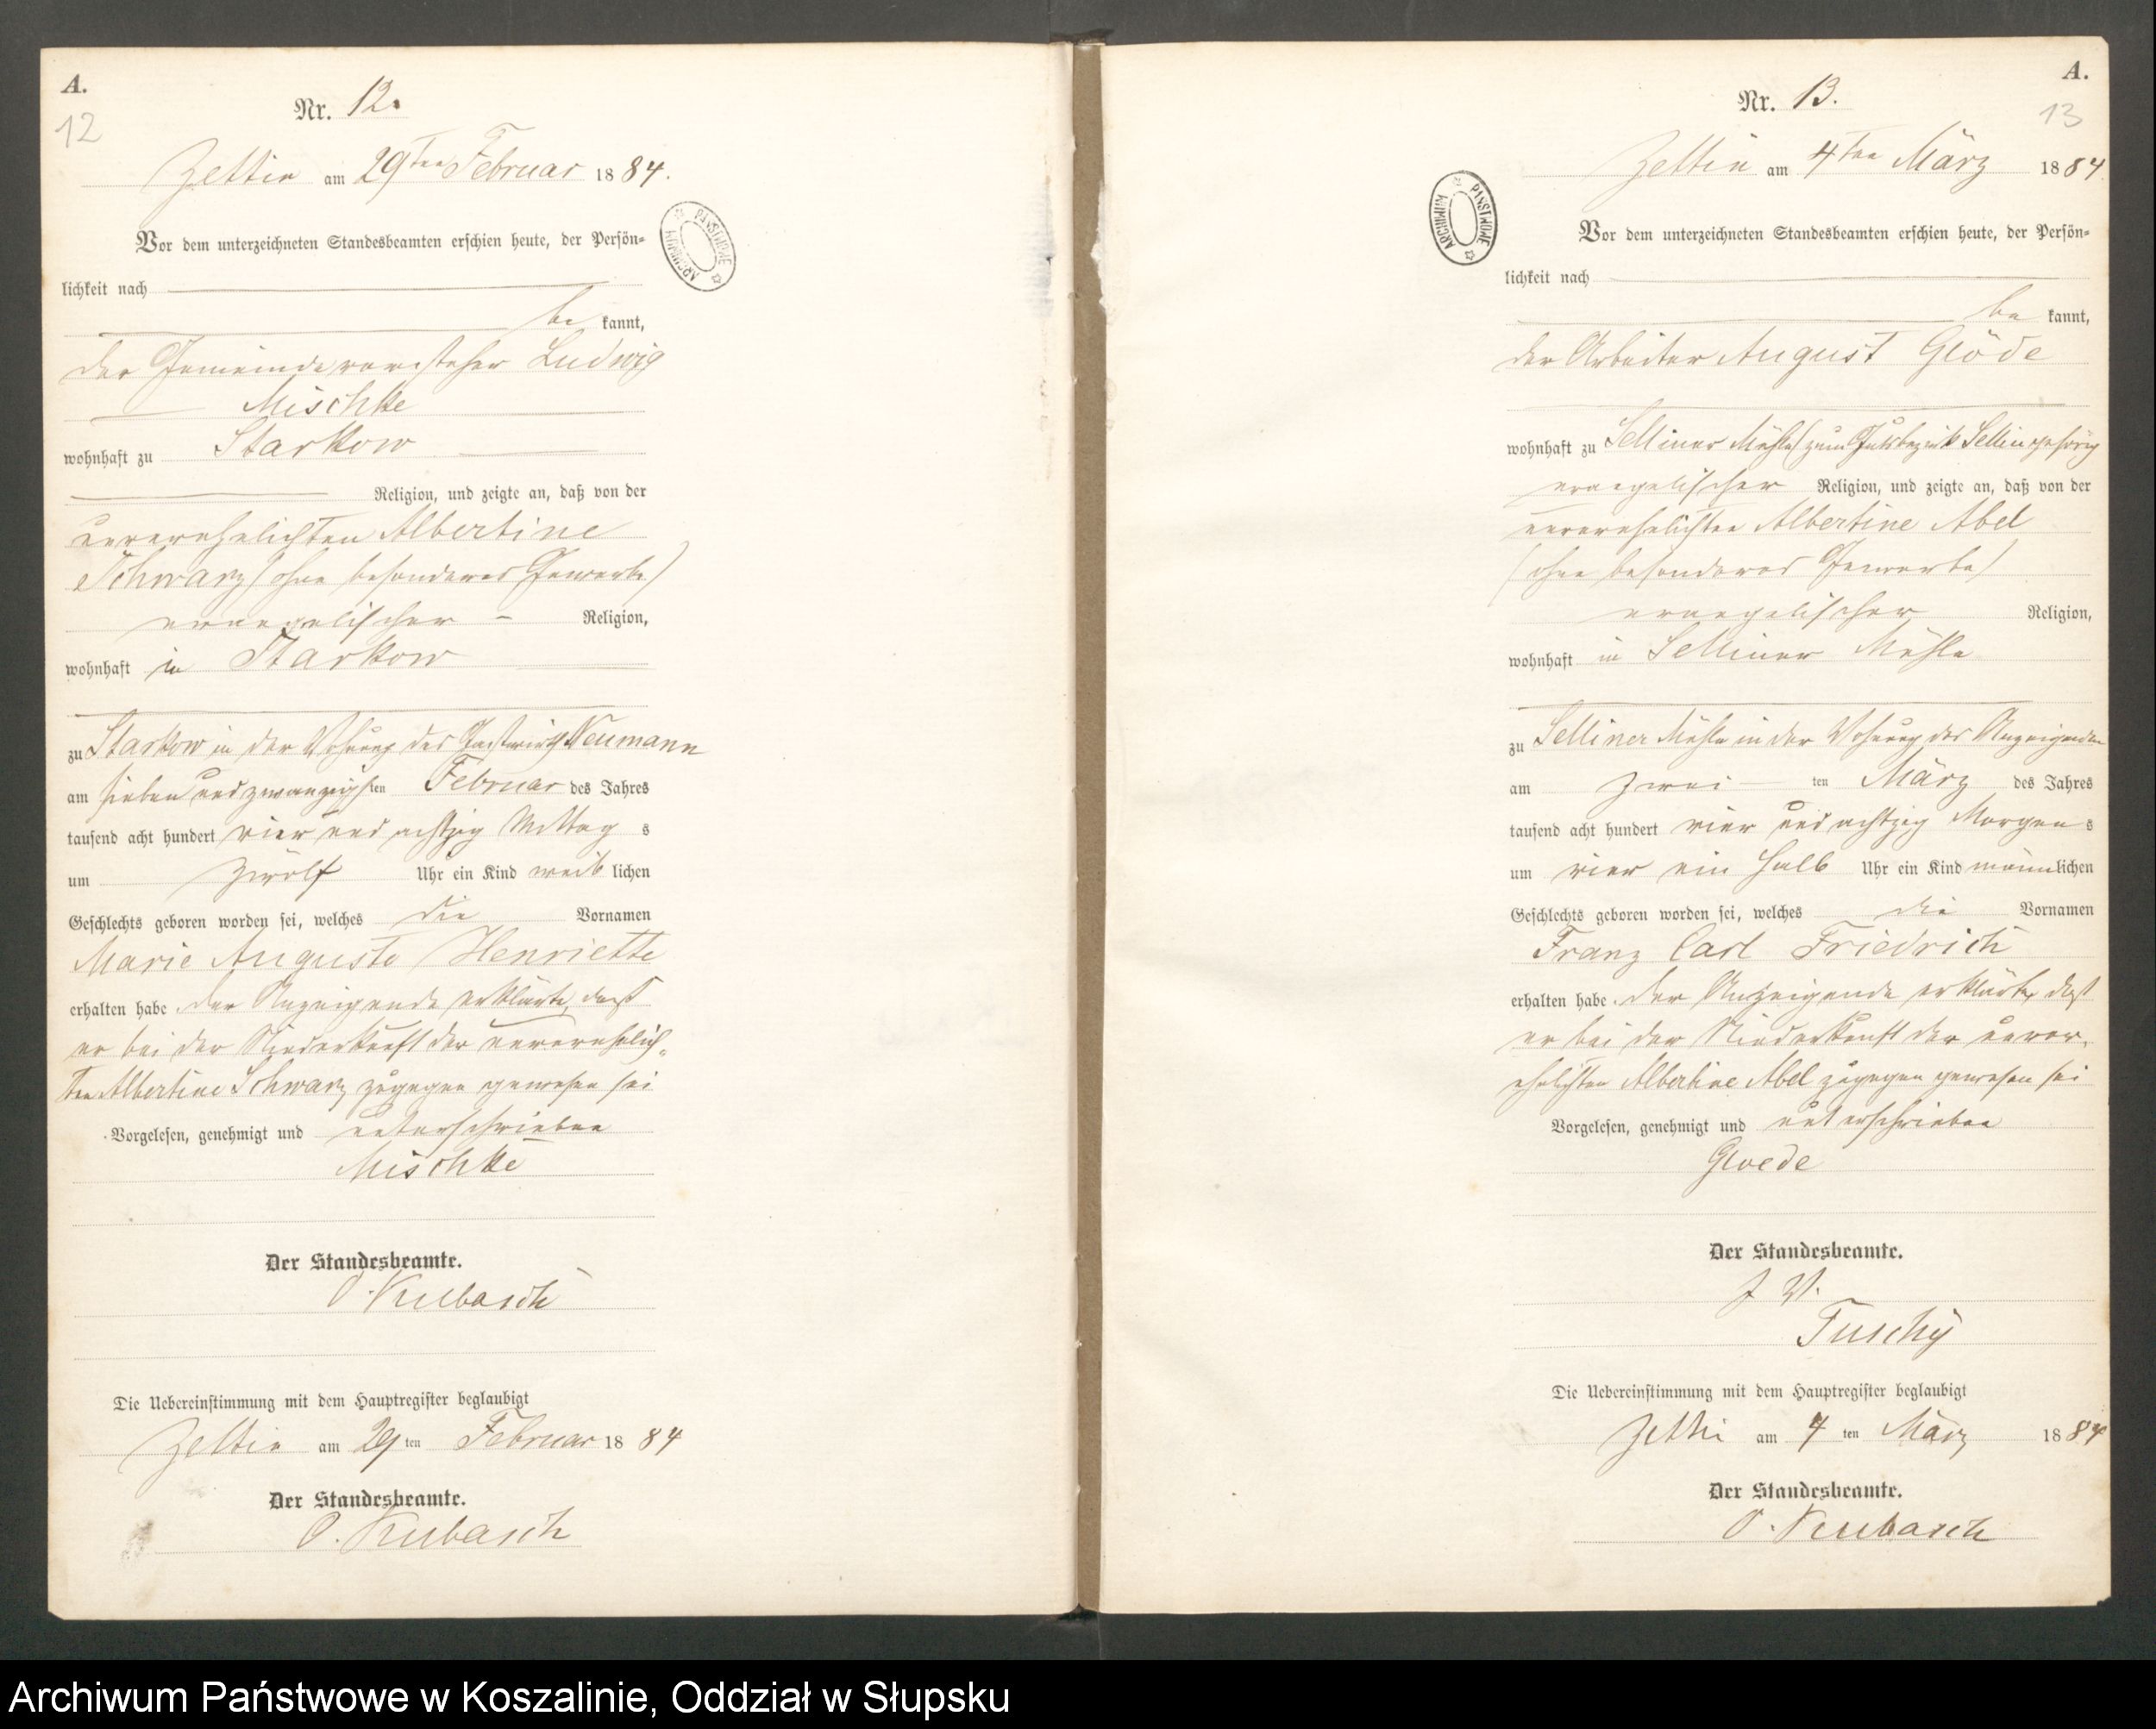 A.
12
Nr. 12.
Zettin am 29ten Februar 1884.
Vor dem unterzeichneten Standesbeamten erschien heute, der Persön-
lichkeit nach
be kannt,
der Gemeindevorsteher Ludwig
Mischke
wohnhaft zu Starkow
Religion, und zeigte an, daß von der
unverehelichten Albertine
Schwarz (ohne besonderes Gewerbe)
evangelischer Religion,
wohnhaft in Starkow
zu Starkow in der Wohnung des Gastwirth Neumann
am sieben und zwanzigsten Februar des Jahres
tausend acht hundert vier und achtzig Mittag s
um zwölf Uhr ein Kind weib lichen
Geschlechts geboren worden sei, welches die Vornamen
Marie Auguste Henriette
erhalten habe. Der Anzeigende erklärte, dass
er bei der Niederkunft der unverehelich-
ten Albertine Schwarz zugegen gewesen sei
Vorgelesen, genehmigt und unterschrieben
Mischke
Der Standesbeamte.
O. Kubasch
Die Uebereinstimmung mit dem Hauptregister beglaubigt
Zettin am 29ten Februar 1884
Der Standesbeamte.
O. Kubasch
ARCHIWUM PAŃSTWOWE
A.
13
Nr. 13.
Zettin am 4ten März 1884.
Vor dem unterzeichneten Standesbeamten erschien heute, der Persön-
lichkeit nach
be kannt,
der Arbeiter August Glöde
wohnhaft zu Selliner Mühle (zum Gutsbezirk Sellin gehörig
evangelischer Religion, und zeigte an, daß von der
unverehelichten Albertine Abel
(ohne besonderes Gewerbe)
evangelischer Religion,
wohnhaft in Selliner Mühle
zu Selliner Mühle in der Wohnung des Anzeigenden
am zwei ten März des Jahres
tausend acht hundert vier und achtzig Morgen s
um vier ein halb Uhr ein Kind männlichen
Geschlechts geboren worden sei, welches die Vornamen
Franz Carl Friedrich
erhalten habe. Der Anzeigende erklärte, dass
er bei der Niederkunft der unver-
ehelichten Albertine Abel zugegen gewesen sei
Vorgelesen, genehmigt und unterschrieben
Gloede
Der Standesbeamte.
J. V.
Tuschy
Die Uebereinstimmung mit dem Hauptregister beglaubigt
Zettin am 4ten März 1884
Der Standesbeamte.
O. Kubasch
ARCHIWUM PAŃSTWOWE
Archiwum Państwowe w Koszalinie, Oddział w Słupsku